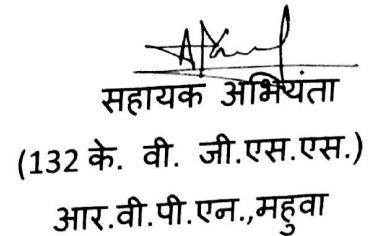 सहायक अभियंता
(132 के. वी. जी.एस.एस.)
आर.वी.पी.एन.,महुवा